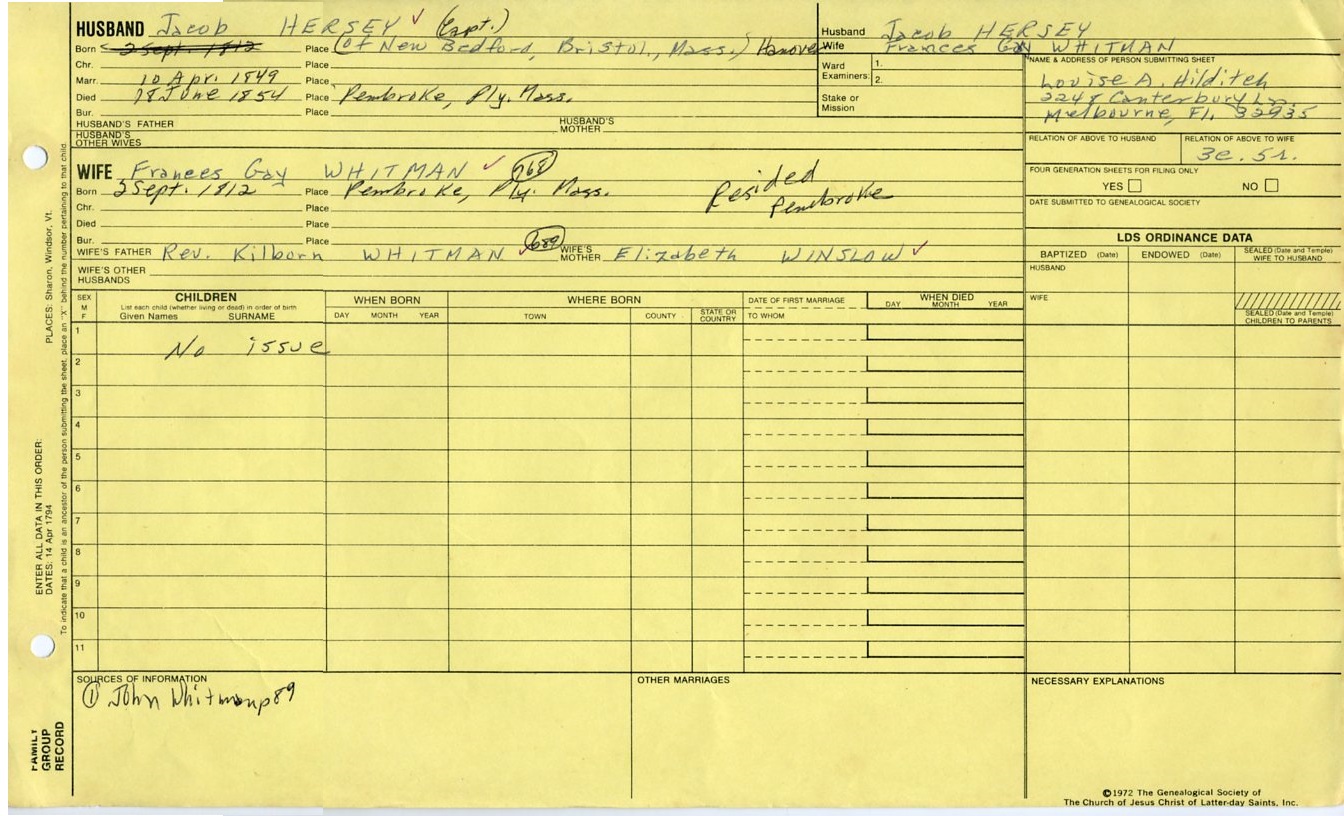 HUSBAND Jacob HERSEY ✓ (Capt.)
Born < 2 Sept. 1812 Place (of New Bedford, Bristol, Mass.) Hanover
Chr. Place
Marr. 10 Apr. 1849 Place
Died 18 June 1854 Place Pembroke, Ply. Mass.
Bur. Place
HUSBAND'S FATHER HUSBAND'S MOTHER
HUSBAND'S OTHER WIVES
Husband Jacob HERSEY
Wife Frances Gay WHITMAN
Ward Examiners: 1.
2.
Stake or Mission
NAME & ADDRESS OF PERSON SUBMITTING SHEET
Louise A. Hilditch
2248 Canterbury Ln.
Melbourne, Fl. 32935
RELATION OF ABOVE TO HUSBAND RELATION OF ABOVE TO WIFE
3c. 5r.
FOUR GENERATION SHEETS FOR FILING ONLY
YES NO
DATE SUBMITTED TO GENEALOGICAL SOCIETY
WIFE Frances Gay WHITMAN ✓ 768
Born 2 Sept. 1812 Place Pembroke, Ply. Mass. Resided Pembroke
Chr. Place
Died Place
Bur. Place
WIFE'S FATHER Rev. Kilborn WHITMAN ✓ 689 WIFE'S MOTHER Elizabeth WINSLOW ✓
WIFE'S OTHER HUSBANDS
LDS ORDINANCE DATA
BAPTIZED (Date) ENDOWED (Date) SEALED (Date and Temple) WIFE TO HUSBAND
HUSBAND
WIFE
SEALED (Date and Temple) CHILDREN TO PARENTS
SEX M F
CHILDREN
List each child (whether living or dead) in order of birth
Given Names SURNAME
WHEN BORN
DAY MONTH YEAR
WHERE BORN
TOWN COUNTY STATE OR COUNTRY
DATE OF FIRST MARRIAGE
TO WHOM
WHEN DIED
DAY MONTH YEAR
1 No issue
2
3
4
5
6
7
8
9
10
11
SOURCES OF INFORMATION
① John Whitman p89
OTHER MARRIAGES
NECESSARY EXPLANATIONS
©1972 The Genealogical Society of
The Church of Jesus Christ of Latter-day Saints, Inc.
ENTER ALL DATA IN THIS ORDER:
DATES: 14 Apr 1794 PLACES: Sharon, Windsor, Vt.
To indicate that a child is an ancestor of the person submitting the sheet, place an "X" behind the number pertaining to that child.
FAMILY
GROUP
RECORD